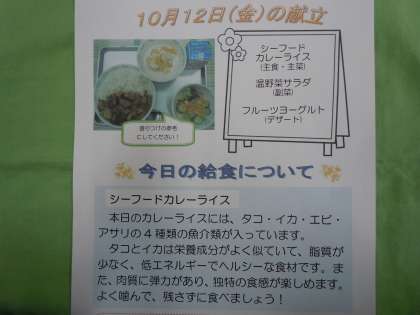 10月12日(金)の献立
シーフード
カレーライス
(主食・主菜)
温野菜サラダ
(副菜)
フルーツヨーグルト
(デザート)
盛りつけの参考
にしてください!
今日の給食について
シーフードカレーライス
本日のカレーライスには、タコ・イカ・エビ・
アサリの4種類の魚介類が入っています。
タコとイカは栄養成分がよく似ていて、脂質が
少なく、低エネルギーでヘルシーな食材です。ま
た、肉質に弾力があり、独特の食感が楽しめます。
よく噛んで、残さずに食べましょう!